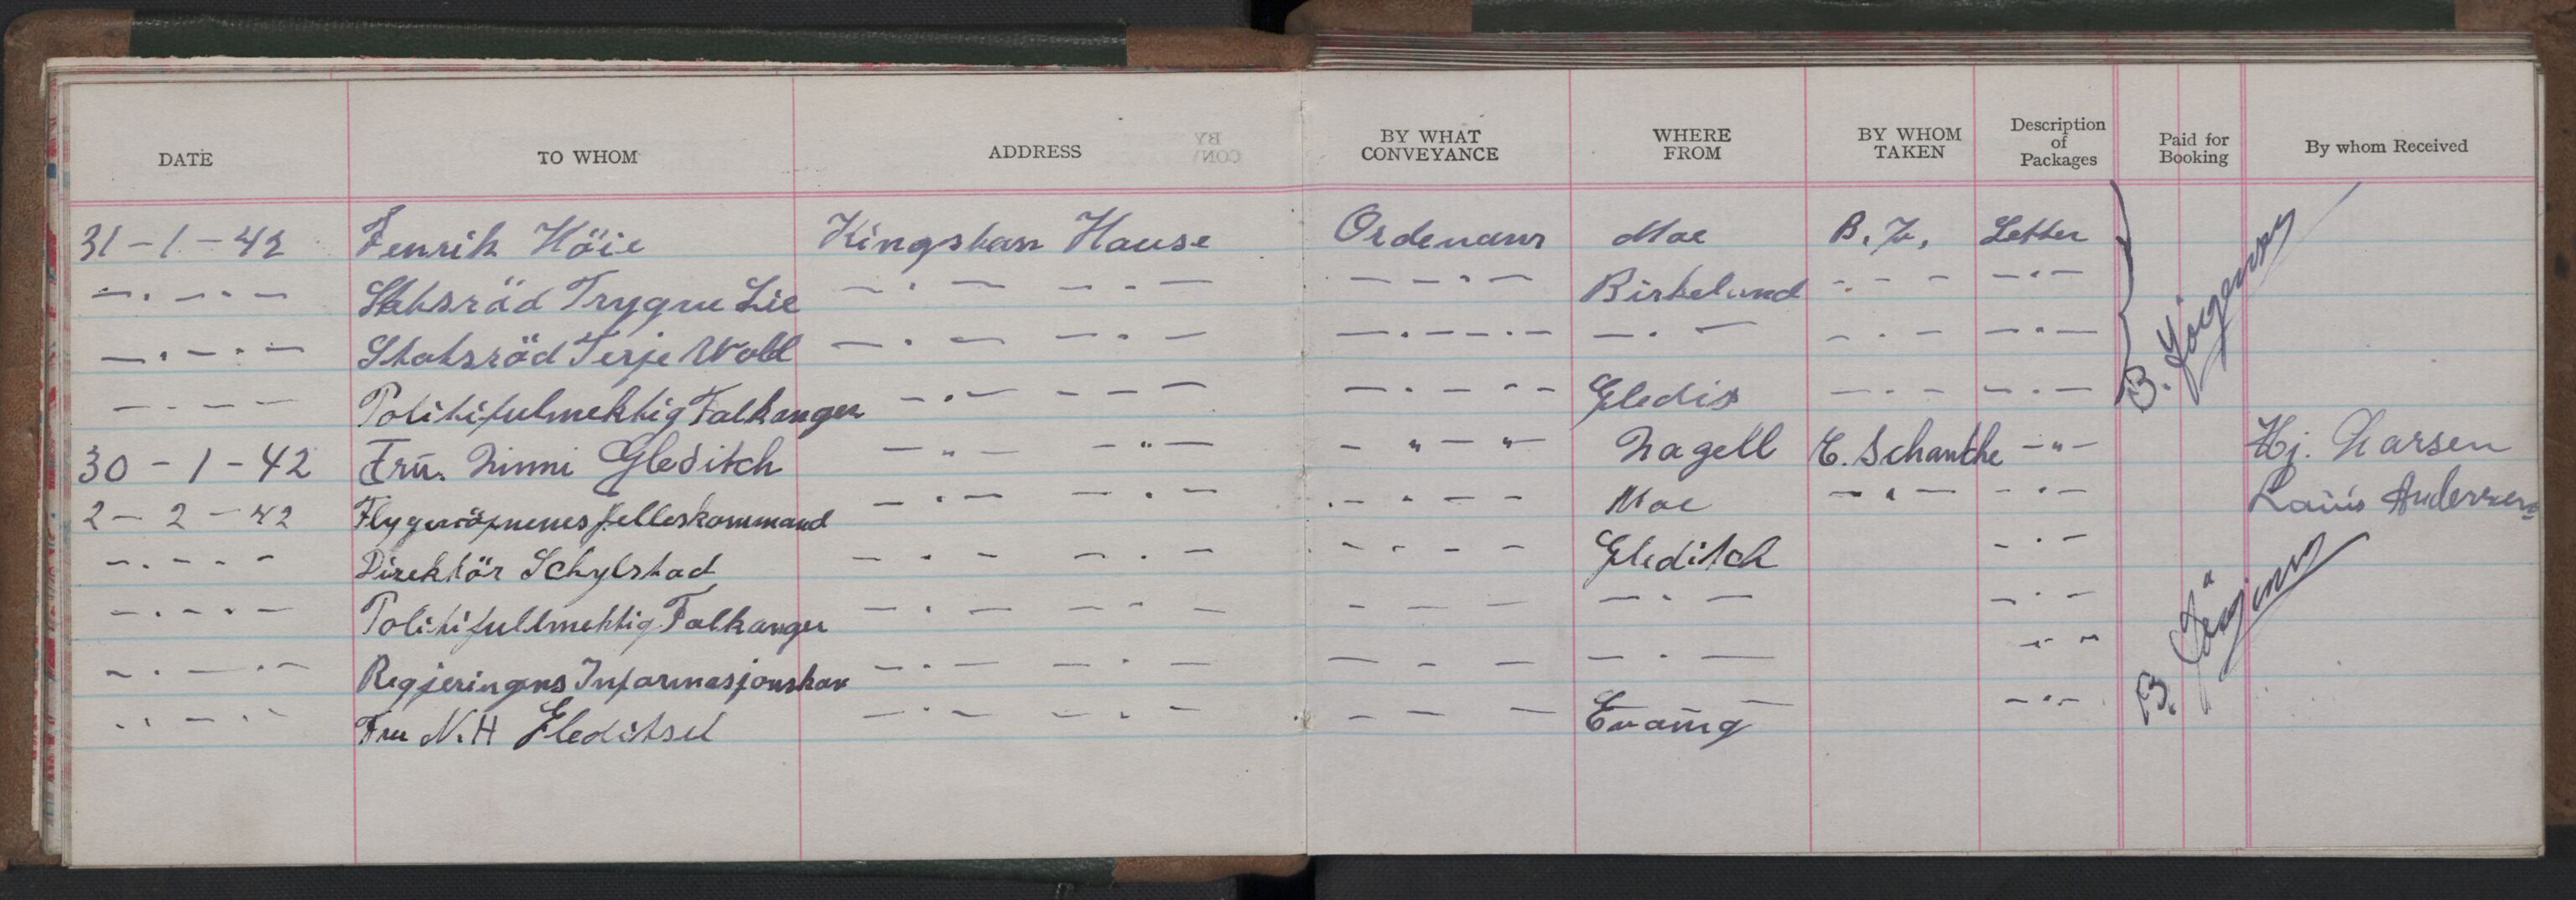 DATE TO WHOM ADDRESS BY WHAT CONVEYANCE WHERE FROM BY WHOM TAKEN Description of Packages Paid for Booking By whom Received
31-1-42 Fenrik Höie Kingstan House Ordenans Moe B. Letter
— . — . — Statsråd Trygve Lie — . — — . — — — . — Birkeland — - — — . —
— . — . — Statsråd Terje Wold — . — — . — — . — . — — . — — . — — . —
— - — — Politifulmektig Falkanger — . — — — — — . — - — Gledis — . — — . —
30-1-42 Fru. Ninni Gleditch — „ — — „ — — „ — „ — Nagell E. Schanche — „ — Hj. Larsen
2-2-42 Flygevåpnenes felleskommand — . — — . — — . — — Moe — . — — . — Lauis Andersen
— . — . — Direktör Schylstad — . — — . — — - — — Gleditch — . —
— . — . — Politifullmektig Falkanger — . — — - — — — — — . — — . —
— . — . — Regjeringens Informasjonskon — . — — . — — — — — . — — . —
— . — . — Fru N.H Gleditsch — . — — . — — — — — . —